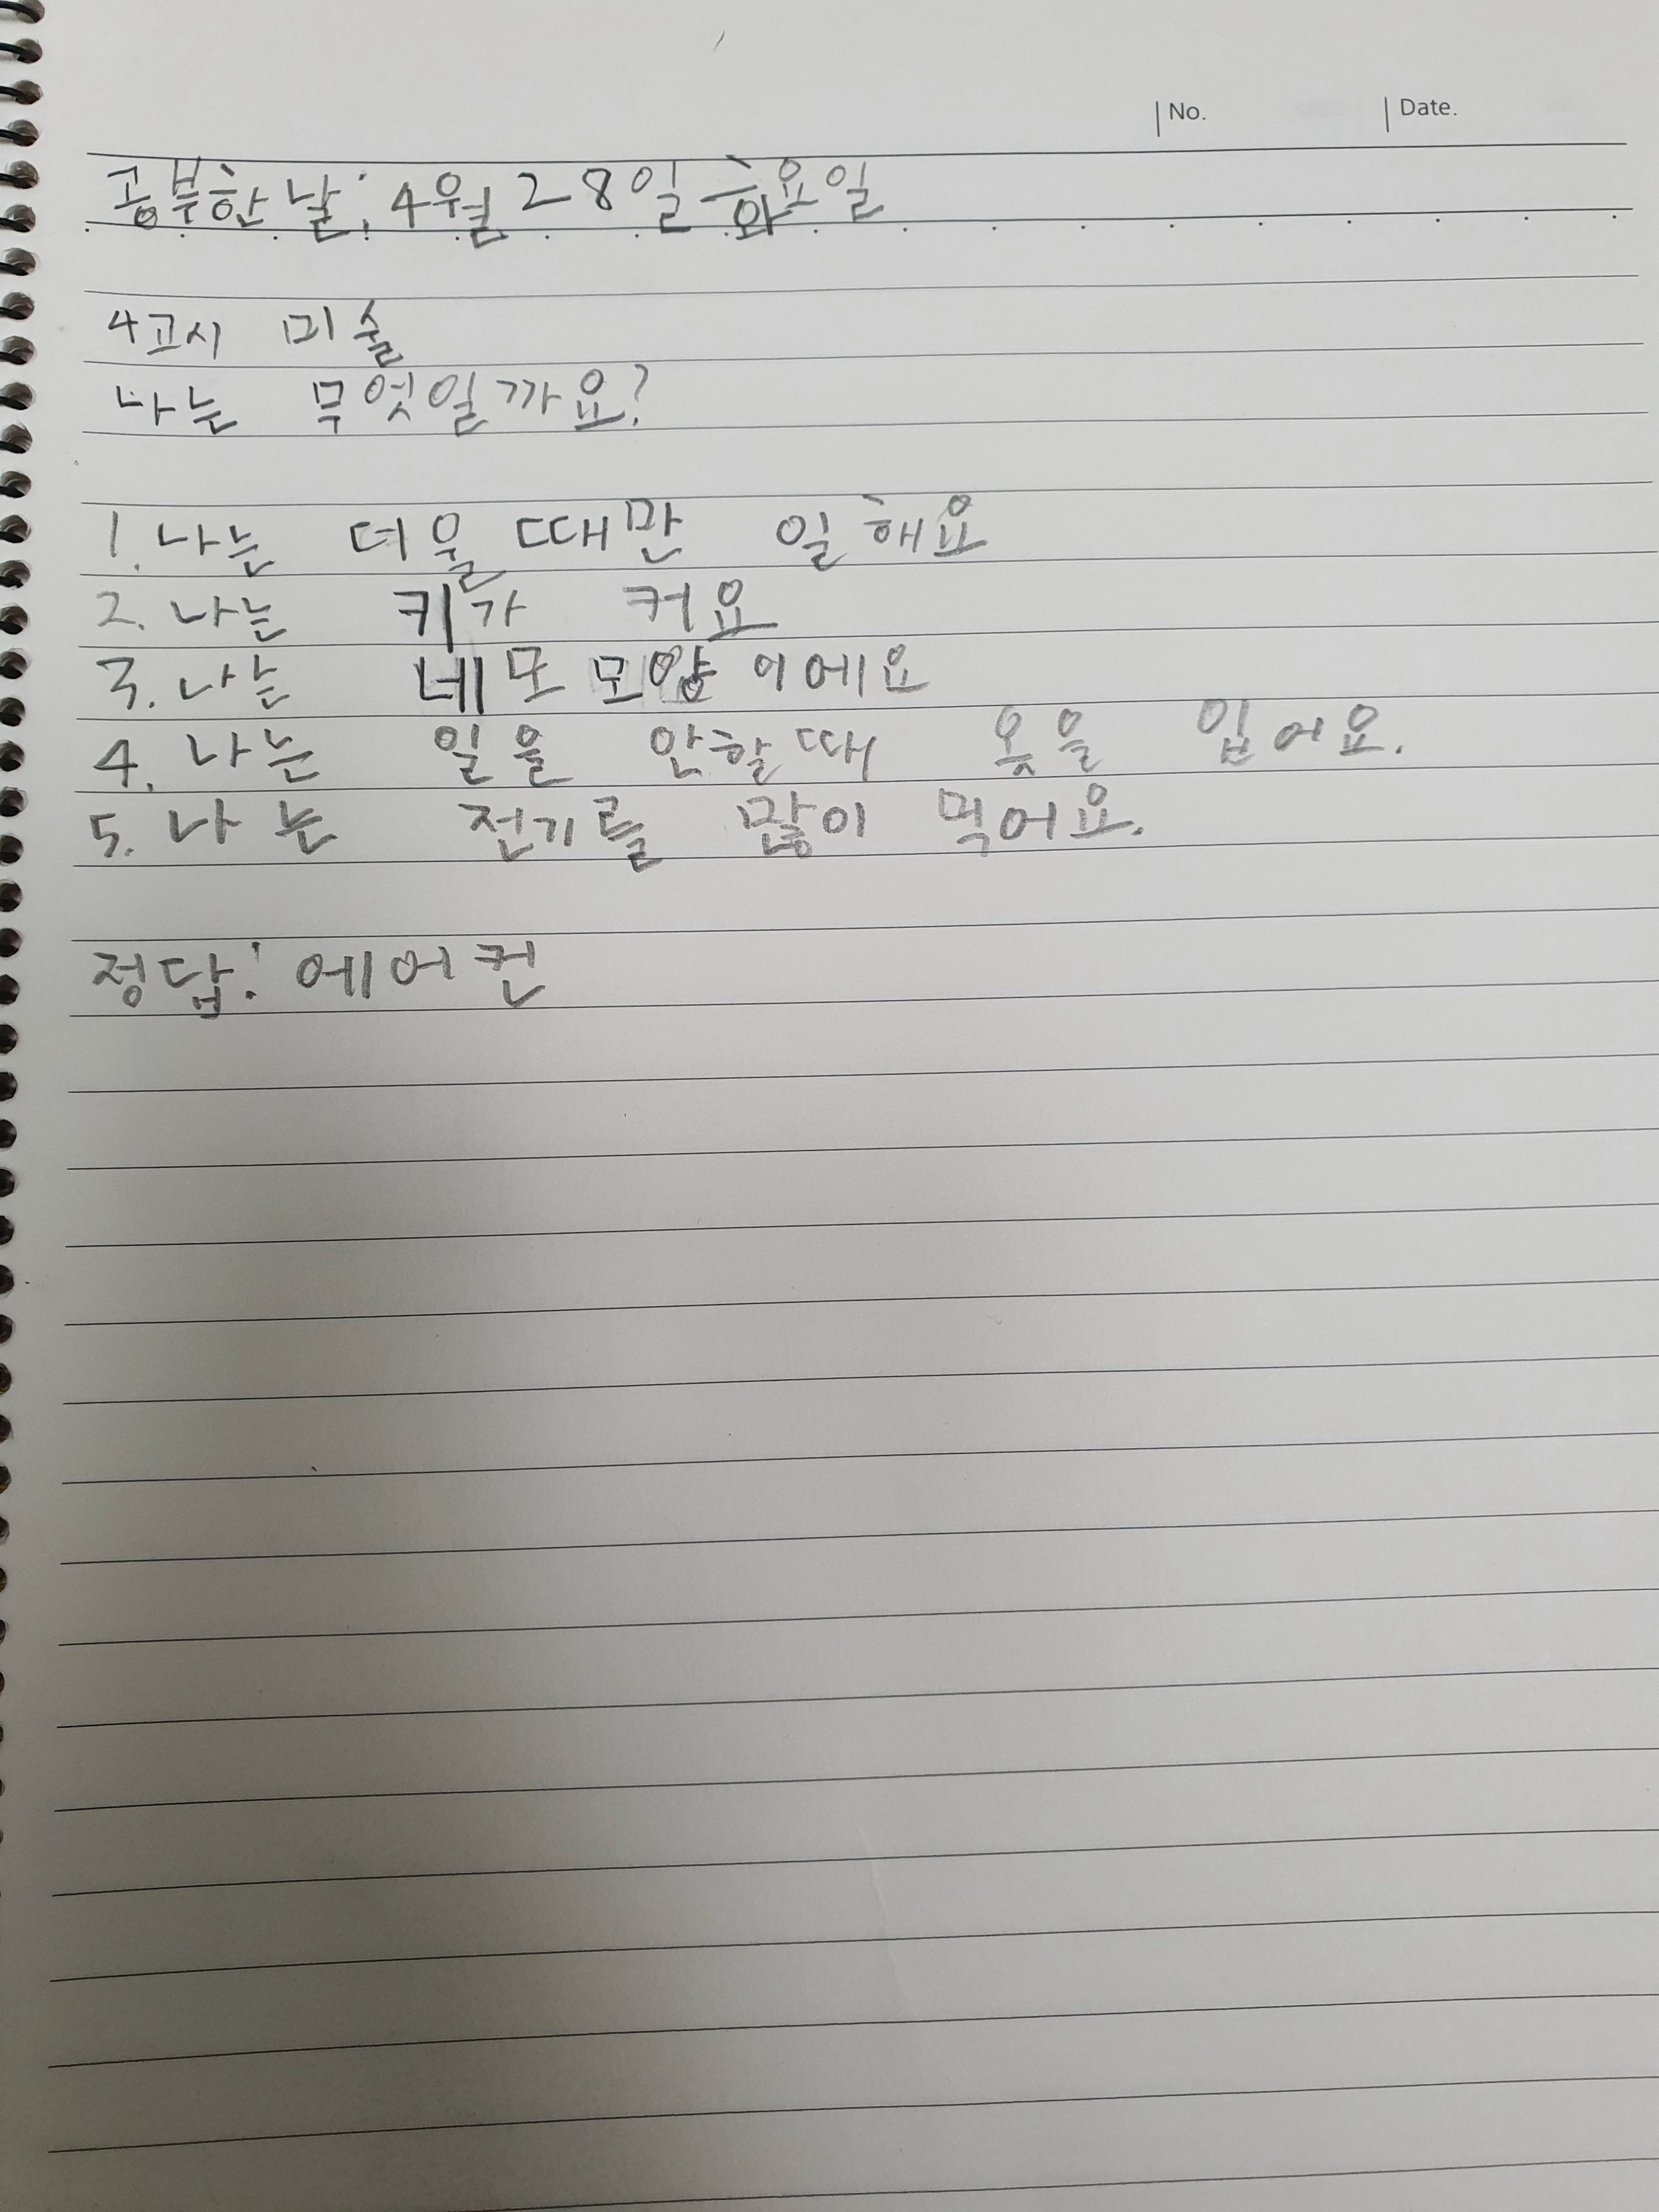 No. Date.
공부한 날: 4월 28일 화요일
4교시 미술
나는 무엇일까요?
1. 나는 더울 때만 일해요
2. 나는 키가 커요
3. 나는 네모 모양이에요
4. 나는 일을 안할 때 옷을 입어요.
5. 나는 전기를 많이 먹어요.
정답: 에어컨